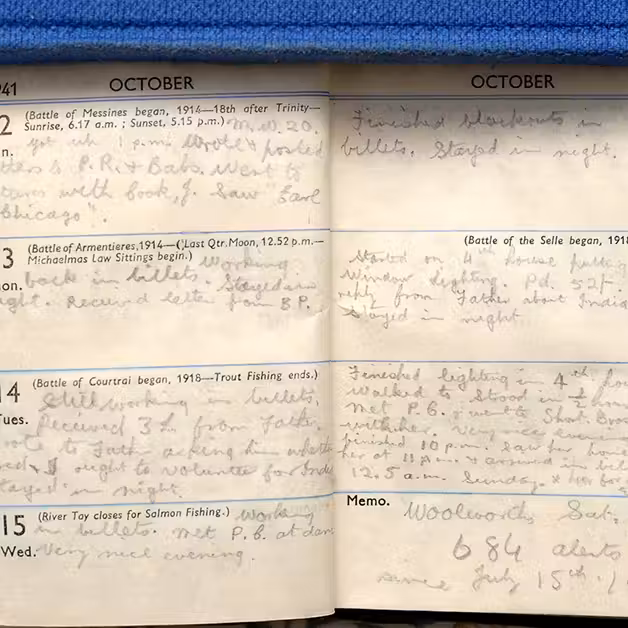 941 OCTOBER
2 (Battle of Messines began, 1914—18th after Trinity—
Sunrise, 6.17 a.m. ; Sunset, 5.15 p.m.) M.W. 20.
n. got up 1 p.m. Wrote & posted
tters to P.R. & Babs. Went to
tures with Cook, J. Saw "Earl
Chicago".
3 (Battle of Armentieres, 1914—(Last Qtr. Moon, 12.52 p.m.—
Michaelmas Law Sittings begin.) Working
on. back in billets. Stayed in
ght. Received letter from B.P.
14 (Battle of Courtrai began, 1918—Trout Fishing ends.)
Still working in billets.
Tues. Received from Father.
ote to Father asking him whether
I ought to volunteer for Indi
tayed in night.
15 (River Tay closes for Salmon Fishing.) Working
in billets. Met P.B. at dan
Wed. Very nice evening.
OCTOBER
Finished blackouts in
billets. Stayed in night.
(Battle of the Selle began, 1918
Started on 4th house putting
window lighting. Pd. 52/-
reply from Father about India
Stayed in night
Finished lighting in 4th hou
Walked to Strood in ½ hour
Met P.B. & went to Short Bros
with her. Very nice evening
finished 10 p.m. Saw her home
her at 11 p.m. & arrived in bill
12.5 a.m. Sunday.
Memo. Woolworths Sat.
684 alerts
since July 15th